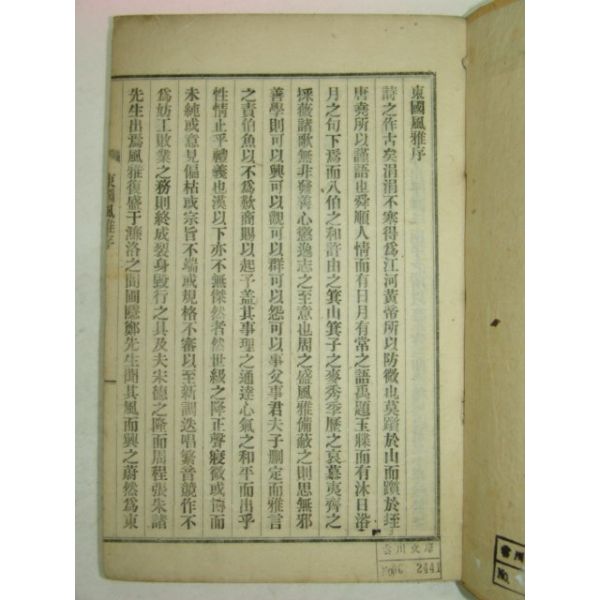 東國風雅序
詩之作古矣涓涓不塞得爲江河黃帝所以防微也莫躓於山而躓於垤
唐堯所以謹語也舜順人情而有日月有常之語禹題玉牒而有沐日浴
月之句下爲而八伯之和許由之箕山箕子之麥秀季歷之哀慕夷齊之
採薇諸歌無非發善心懲逸志之至意也周之盛風雅備蔽之則思無邪
善學則可以興可以觀可以群可以怨可以事父事君夫子刪定而雅言
之責伯魚以不爲歎商賜以起予盖其事理之通達心气之和平而出乎
性情止乎禮義也漢以下亦不無傑然者然世級之降正聲寢微或博而
未純或意見偏枯或宗旨不端或規格不審以至新調迭唱繁音競作不
爲妨工敗業之務則終成裂身毀行之具及夫宋德之隆而周程張朱諸
先生出爲風雅復盛于濂洛之間圃隱鄭先生聞其風而興之蔚然爲東
東國風雅序
雲川文庫
No.06 2441
No.